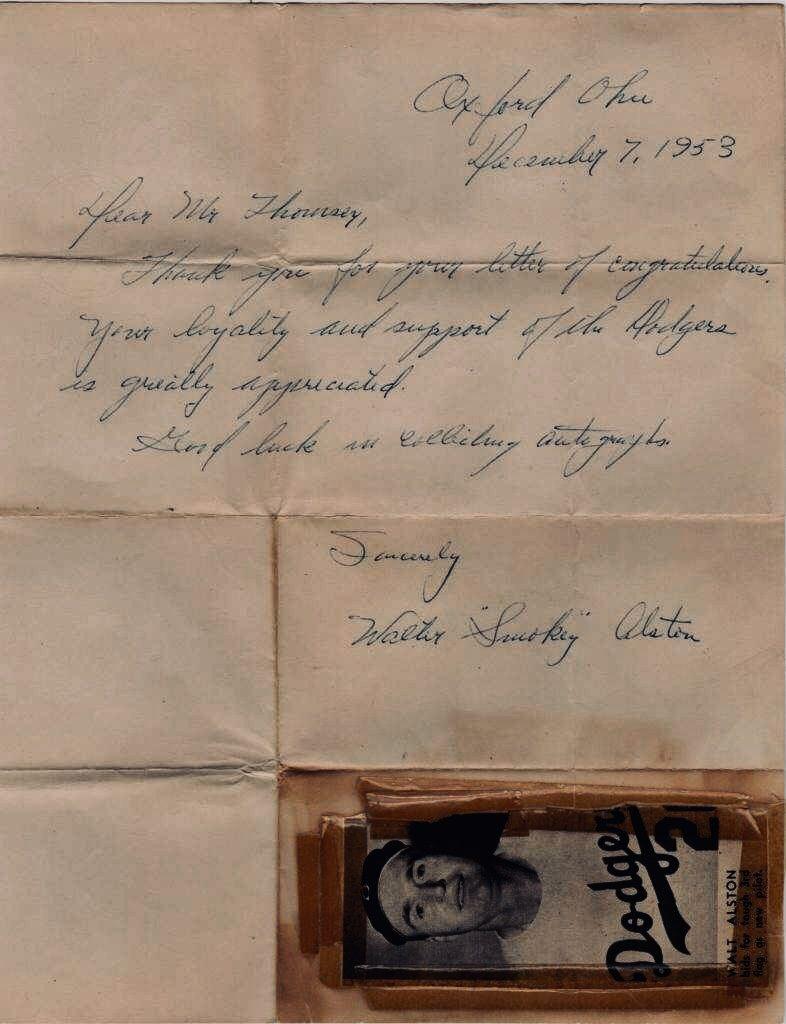 Oxford Ohio
December 7, 1953
Dear Mr Thomsey,
Thank you for your letter of congratulations.
Your loyality and support of the Dodgers
is greatly appreciated.
Good luck in collecting autographs.
Sincerely
Walter "Smokey" Alston
Dodgers
21
WALT ALSTON
bids for tough 3rd
flag as new pilot.